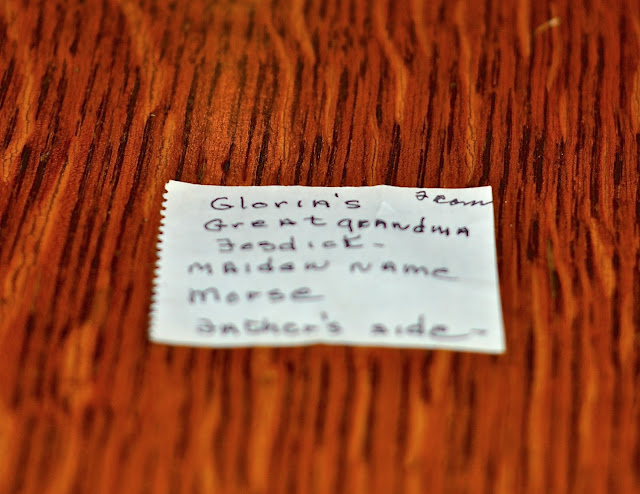 Gloria's From
Great grandma
Fosdick -
Maiden name
Morse
Father's side -